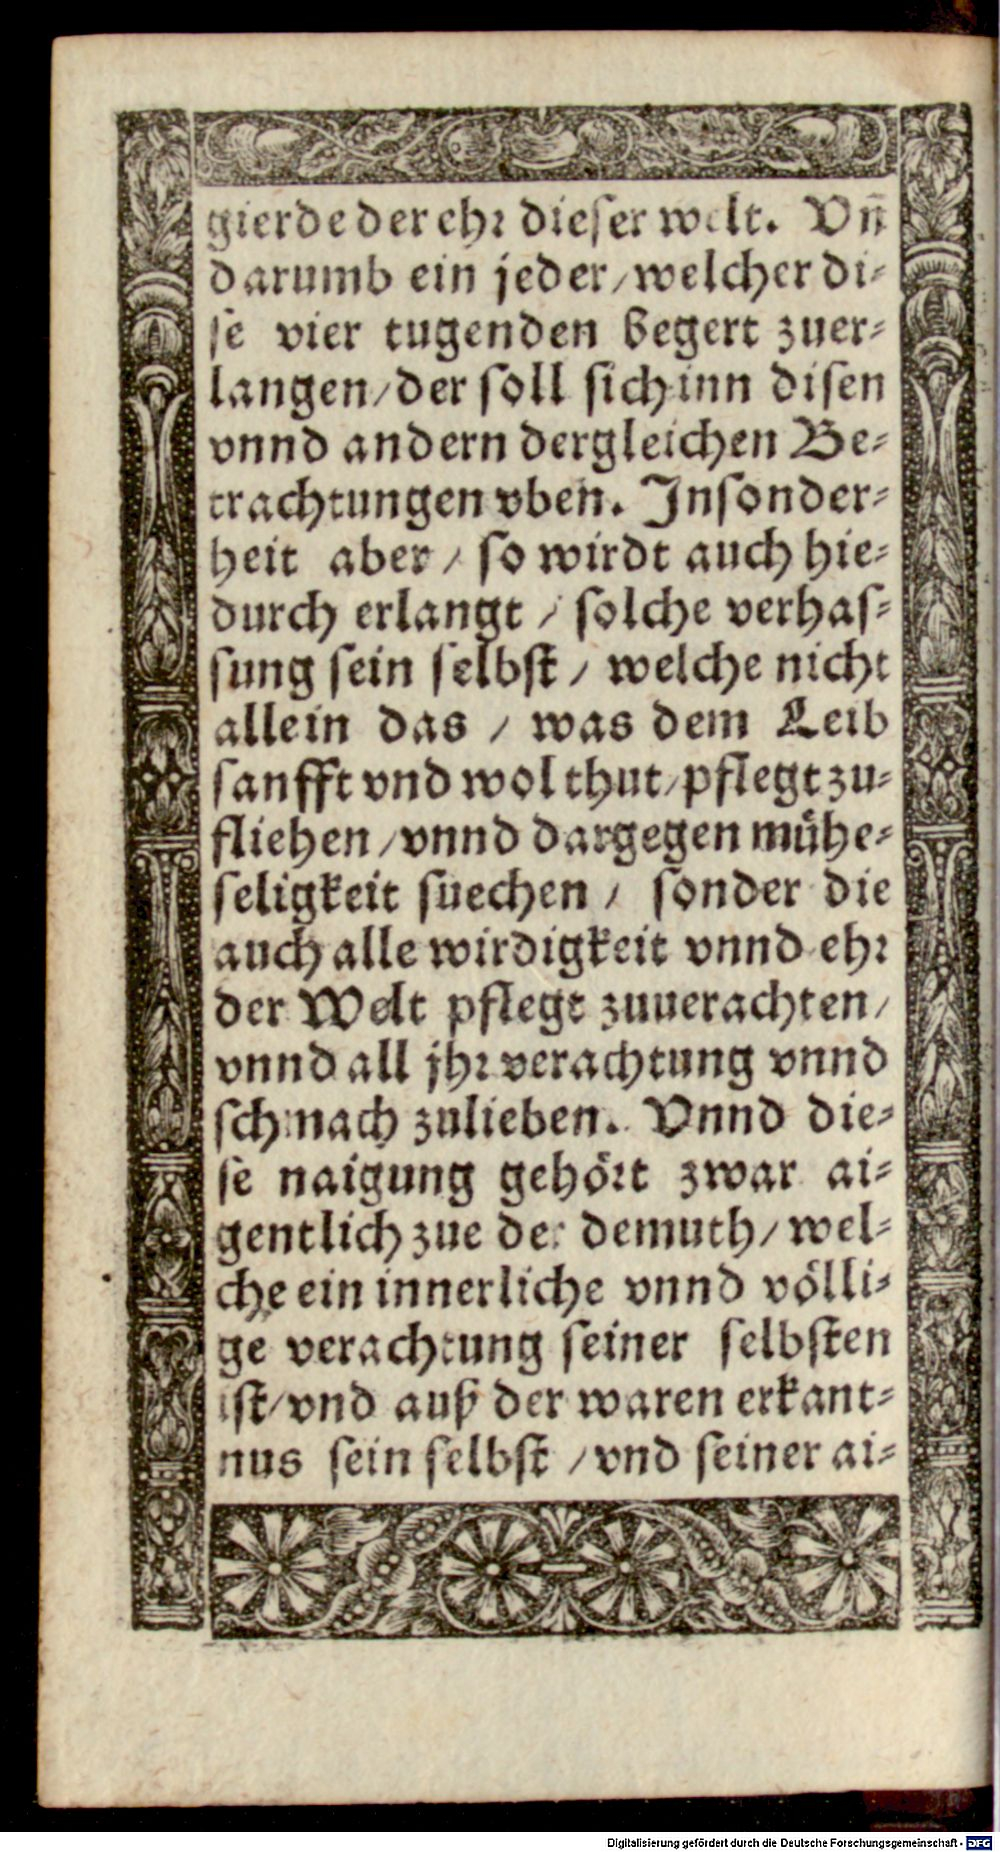 gierde der ehr dieser welt. Vñ
darumb ein jeder/welcher di⸗
se vier tugenden begert zuer⸗
langen/der soll sich inn disen
vnnd andern dergleichen Be⸗
trachtungen vben. Insonder⸗
heit aber/ so wirdt auch hie⸗
durch erlangt / solche verhas⸗
sung sein selbst / welche nicht
allein das / was dem Leib
sanfft vnd wol thut/pflegt zu⸗
fliehen/vnnd dargegen mühe⸗
seligkeit suechen / sonder die
auch alle wirdigkeit vnnd ehr
der Welt pflegt zuuerachten/
vnnd all jhr verachtung vnnd
schmach zulieben. Vnnd die⸗
se naigung gehört zwar ai⸗
gentlich zue der demuth/ wel⸗
che ein innerliche vnnd völli⸗
ge verachtung seiner selbsten
ist/vnd auß der waren erkant⸗
nus sein selbst /vnd seiner ai⸗
Digitalisierung gefördert durch die Deutsche Forschungsgemeinschaft - DFG